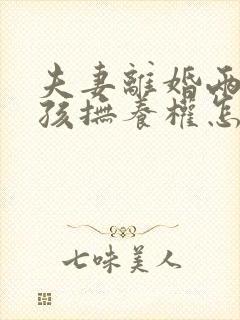 夫妻離婚兩
孩撫養權怎
七味美人